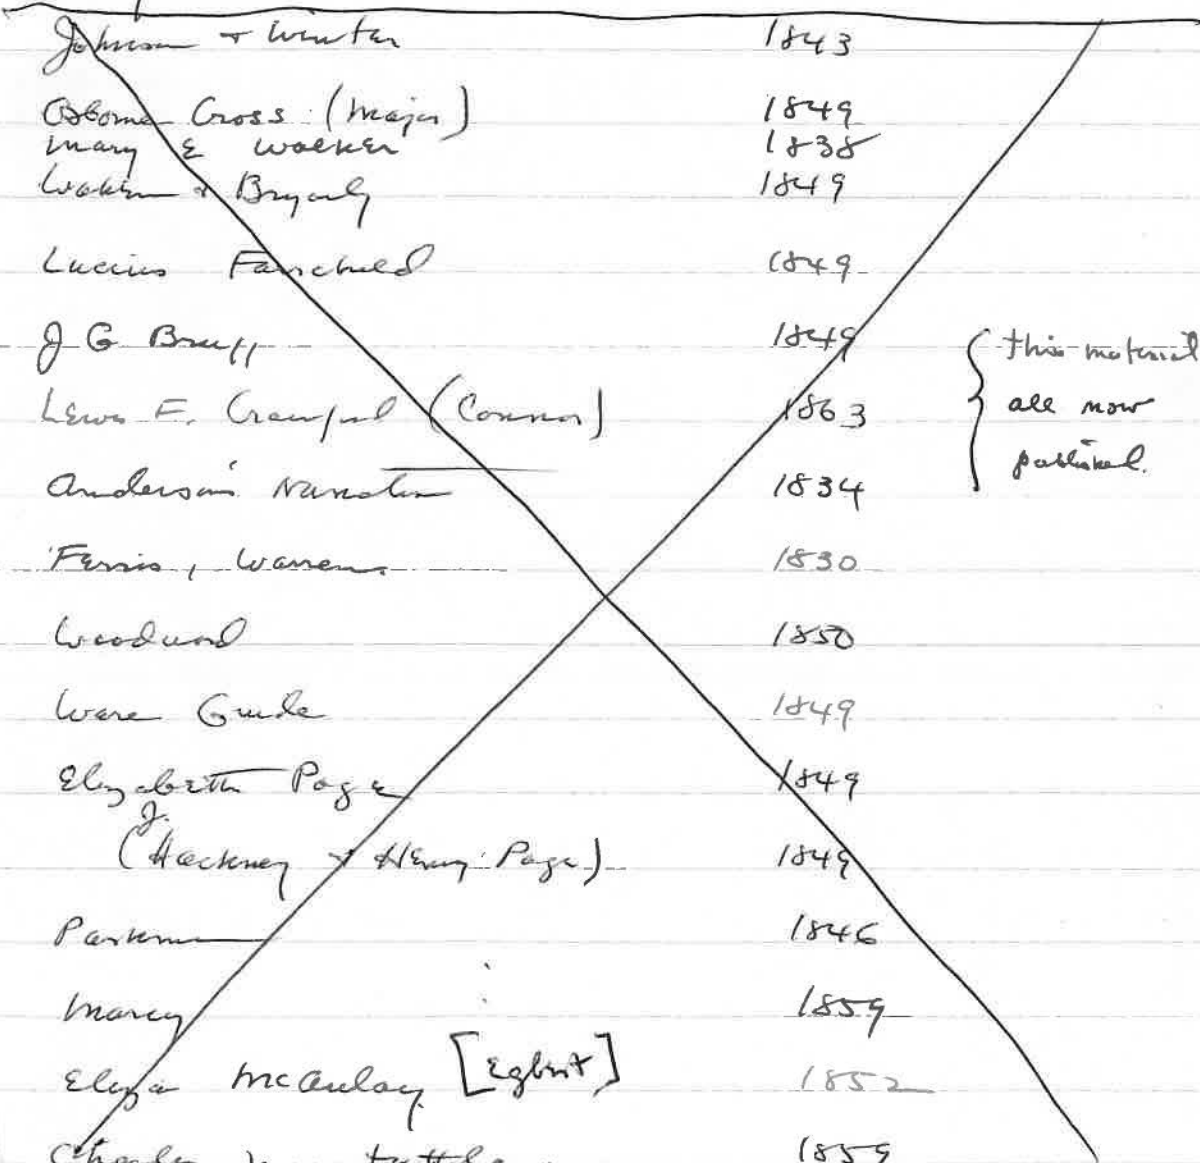 Johnson + Winter 1843
Osborne Cross (Major) 1849
Mary E Walker 1838
Wakem + Bryarly 1849
Lucius Fairchild 1849
J G Bruff 1849
Lewis F. Crawford (Connor) 1863
{ this material
all now
published.
Anderson's Narrative 1834
Ferris, Warren. 1830
Woodward 1850
Ware Guide 1849
Elizabeth Page 1849
(J. Hackney + Henry Page) 1849
Parkman 1846
Marcy 1859
Eliza McAulay [Egbert] 1852
Charles Tuttle 1859